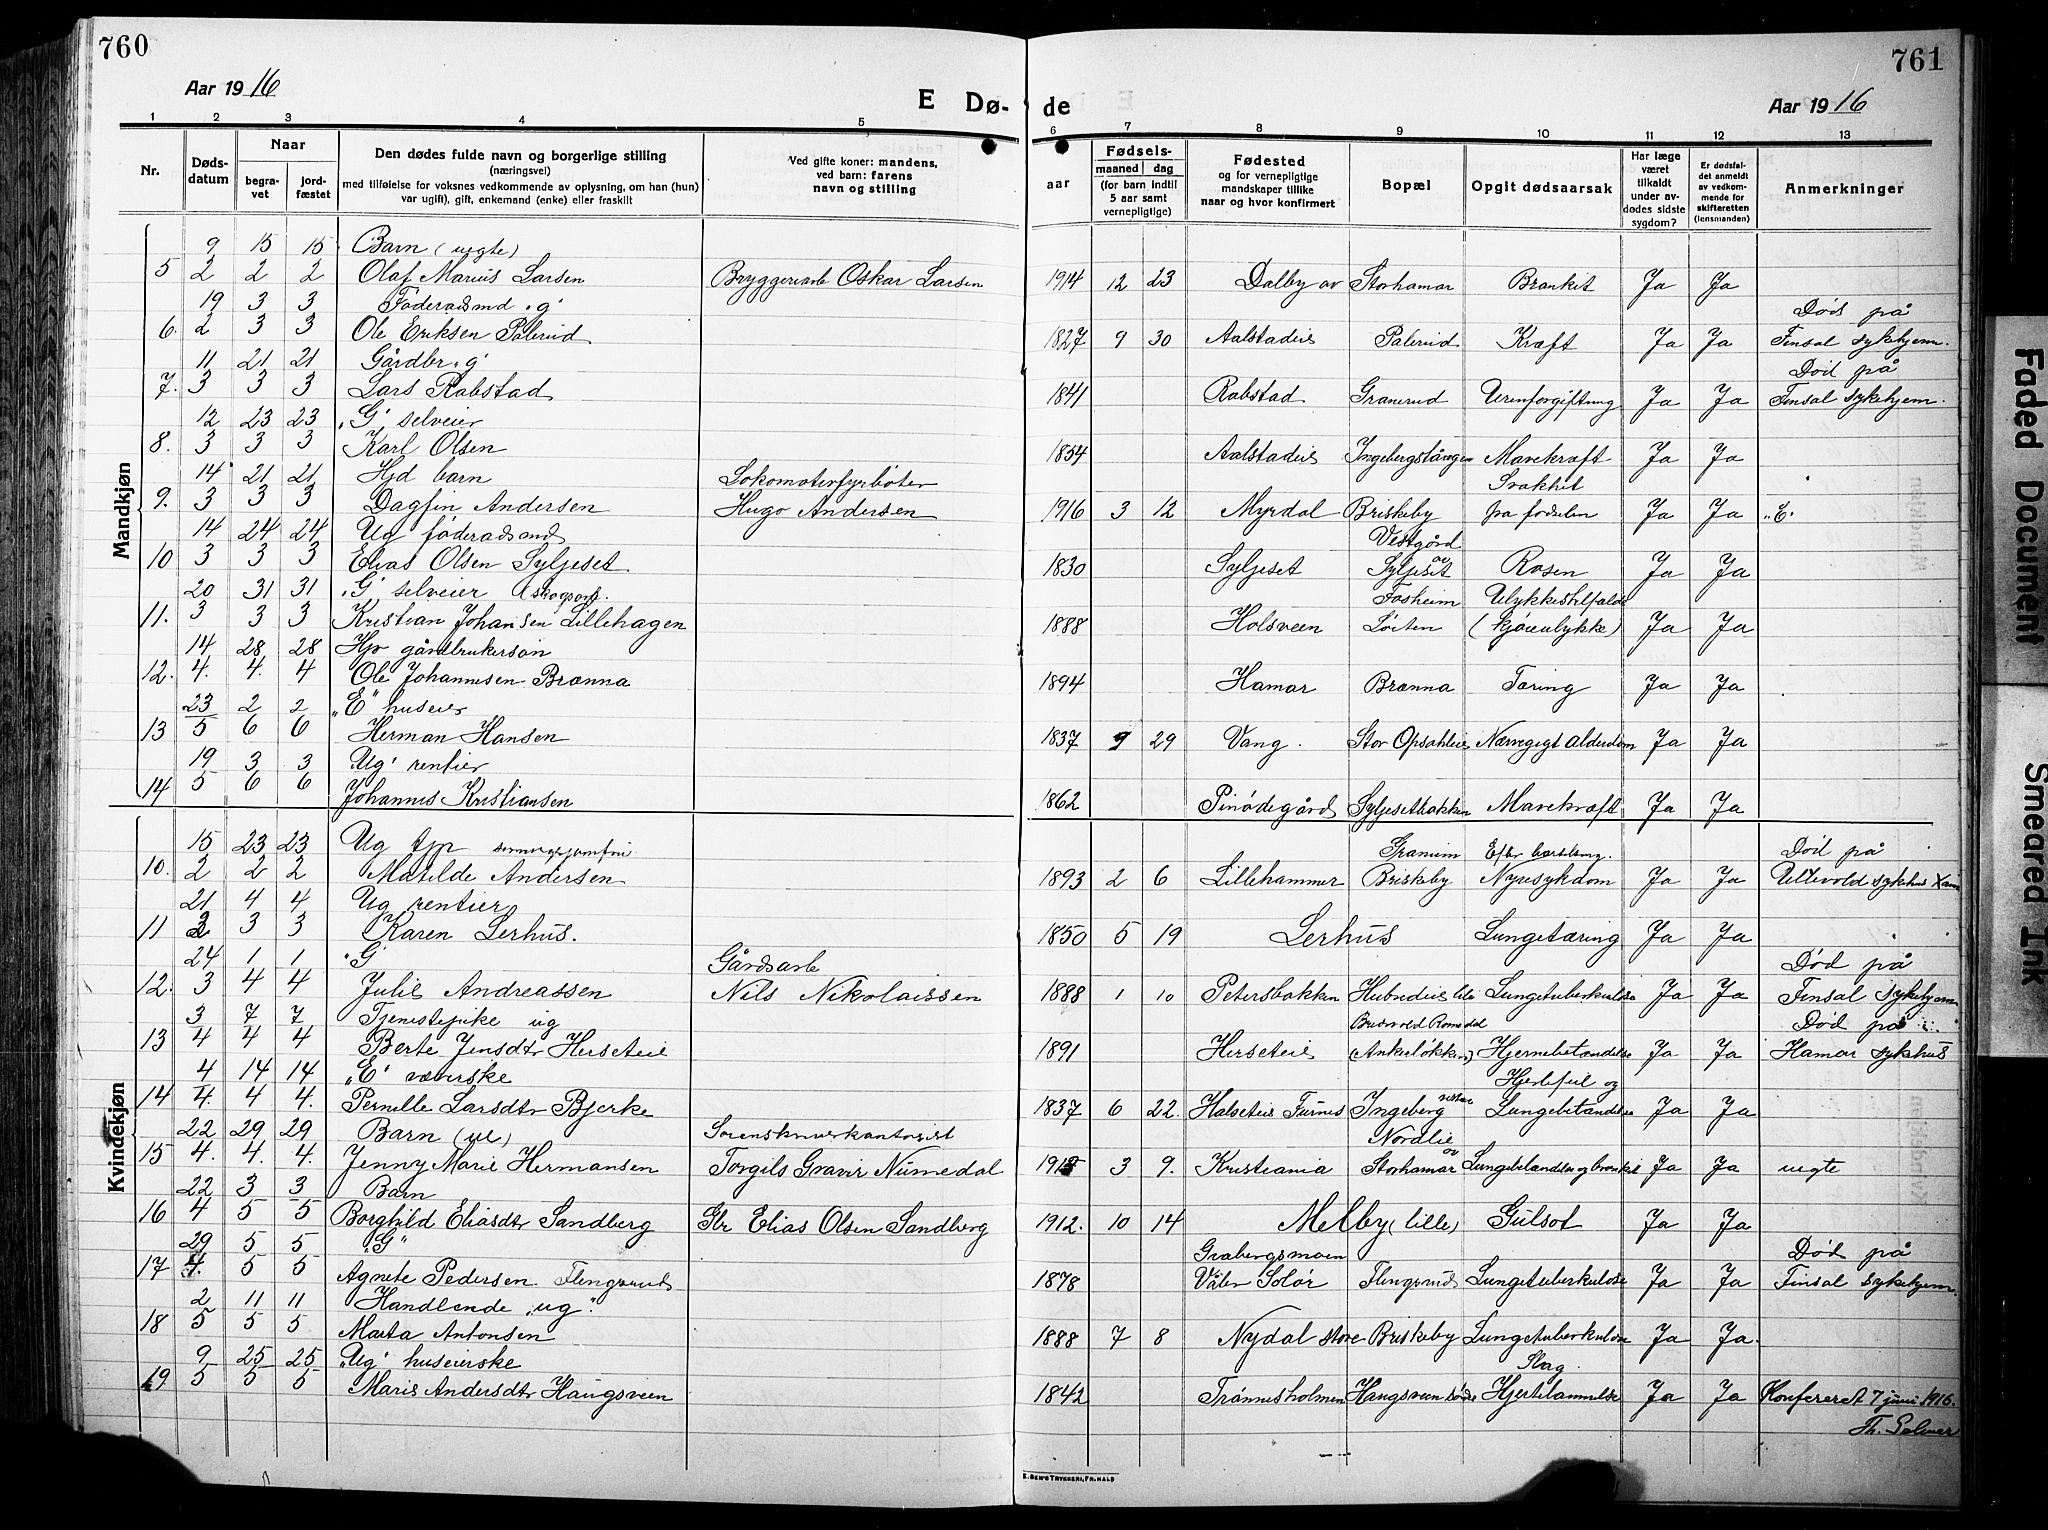 760
761
Aar 1916
E Dø-
de
Aar 1916
1 2 3 4 5 6 7 8 9 10 11 12 13
Nr.
Døds-
datum
Naar
begra-
vet
jord-
fæstet
Den dødes fulde navn og borgerlige stilling
(næringsvei)
med tilføielse for voksnes vedkommende av oplysning, om han (hun)
var ugift), gift, enkemand (enke) eller fraskilt
Ved gifte koner: mandens,
ved barn: farens
navn og stilling
Fødsels-
aar
maaned
dag
(for barn indtil
5 aar samt
vernepligtige)
Fødested
og for vernepligtige
mandskaper tillike
naar og hvor konfirmert
Bopæl
Opgit dødsaarsak
Har læge
været
tilkaldt
under av-
dødes sidste
sygdom?
Er dødsfal-
det anmeldt
av vedkom-
mende for
skifteretten
(lensmanden)
Anmerkninger
Mandkjøn
9 15 15 Barn (uegte)
5 2 2 2 Olaf Marius Larsen Bryggeriarb Oskar Larsen 1914 12 23 Dalby av Storhamar Bronkit Ja Ja
19 3 3 Føderaadsmd „g" Død på
6. 2 3 3 Ole Eriksen Pålerud 1827 9 30 Aalstadeie Pålerud Kræft Ja Ja Finsal sykehjem.
11 21 21 Gårdbr „g" Død på
7. 3 3 3 Lars Rabstad 1841 Rabstad Granerud Urinforgiftning Ja Ja Finsal sykehjem.
12 23 23 „G" selveier
8. 3 3 3 Karl Olsen 1854 Aalstadeie Ingebergstangen Mavekræft Ja Ja
14 21 21 Hjd barn Lokomotivfyrbøter Svakhet
9. 3 3 3 Dagfin Andersen Hugo Andersen 1916 3 12 Myrdal Briskeby fra fødselen Ja Ja „E"
14 24 24 Ug føderadsmd Vestgård
10 3 3 3 Elias Olsen Syljeset 1830 Syljeset av Syljeset Rosen Ja Ja
20 31 31 „G" selveier (skogsarb. Fosheim Ulykkestilfælde
11. 3 3 3 Kristian Johansen Lillehagen 1888 Holsveen Løiten (kjøreulykke) Ja Ja
14 28 28 Hjv gårdbrukersøn
12. 4. 4. 4 Ole Johannesen Brænna 1894 Hamar Brænna Tæring Ja Ja
23 2 2 „E" huseier
13 5 6 6 Herman Hansen 1837 9 29 Vang. Stor Opsahleie Nærvegigt Alderdom Ja Ja
19 3 3 „Ug" rentier
14 5 6 6 Johannes Kristiansen 1862 Pinødegård Syljesetbakken Mavekræft Ja Ja
Kvindekjøn
15 23 23 Ug tjp Granum Efter barselseng. Død på
10. 2 2 2 Matilde Andersen 1893 2 6 Lillehammer Briskeby Nyresykdom Ja Ja Ullevold sykehus Xania
21 4 4 Ug rentier
11 2 3 3 Karen Lerhus. 1850 5 19 Lerhus Lungetæring Ja Ja
24 1 1 „G" Gårdsarb Død på
12. 3 4 4 Julie Andreassen Nils Nikolaissen 1888 1 10 Petersbakken Hubredeie lille Lungetuberkulose Ja Ja Finsal sykehjem
3 7 7 Tjenestepike ug Romedal Død på
13 4 4 4 Berte Jensdtr Herseteie 1891 Herseteie (Ankerløkken) Hjernebetændelse Ja Ja Hamar sykehus
4 14 14 „E" væverske Hjertefeil og
14 4. 4 4. Pernille Larsdtr Bjerke 1837 6 22. Halseteie Furnes Ingeberg vestre Lungebetændelse Ja Ja
22 29 29 Barn (ue) Sorenskriverkontorist Nordlie
15 4. 4. 4. Jenny Marie Hermansen Torgils Gravir Numedal 1915 3 9. Kristiania av Storhamar Lungebetændelse og bronkit Ja Ja uegte
22 3 3 Barn
16 4 5 5 Borghild Eliasdtr Sandberg Gbr Elias Olsen Sandberg 1912. 10 14 Melby (lille) Gulsot Ja Ja
29 5 5 „G" Grabergsmoen Død på
17 4. 5 5 Agnete Pedersen Flengsrud 1878 Våler Solør Flengsrud Lungetuberkulose Ja Ja Finsal sykehjem.
2 11 11 Handlende „ug".
18 5 5 5 Marta Antonsen 1888 7 8 Nydal store Briskeby Lungetuberkulose Ja Ja.
9 25 25 „Ug" huseierske Slag.
19 5 5 5 Marie Andersdtr Haugsveen 1842 Trønnesholmen Haugsveen søndre Hjertelammelse Ja Ja Konfereret 7 juni 1916.
Th. Selmer
E. SEM'S TRYKKERI, FR.HALD
Faded Document
Smeared Ink